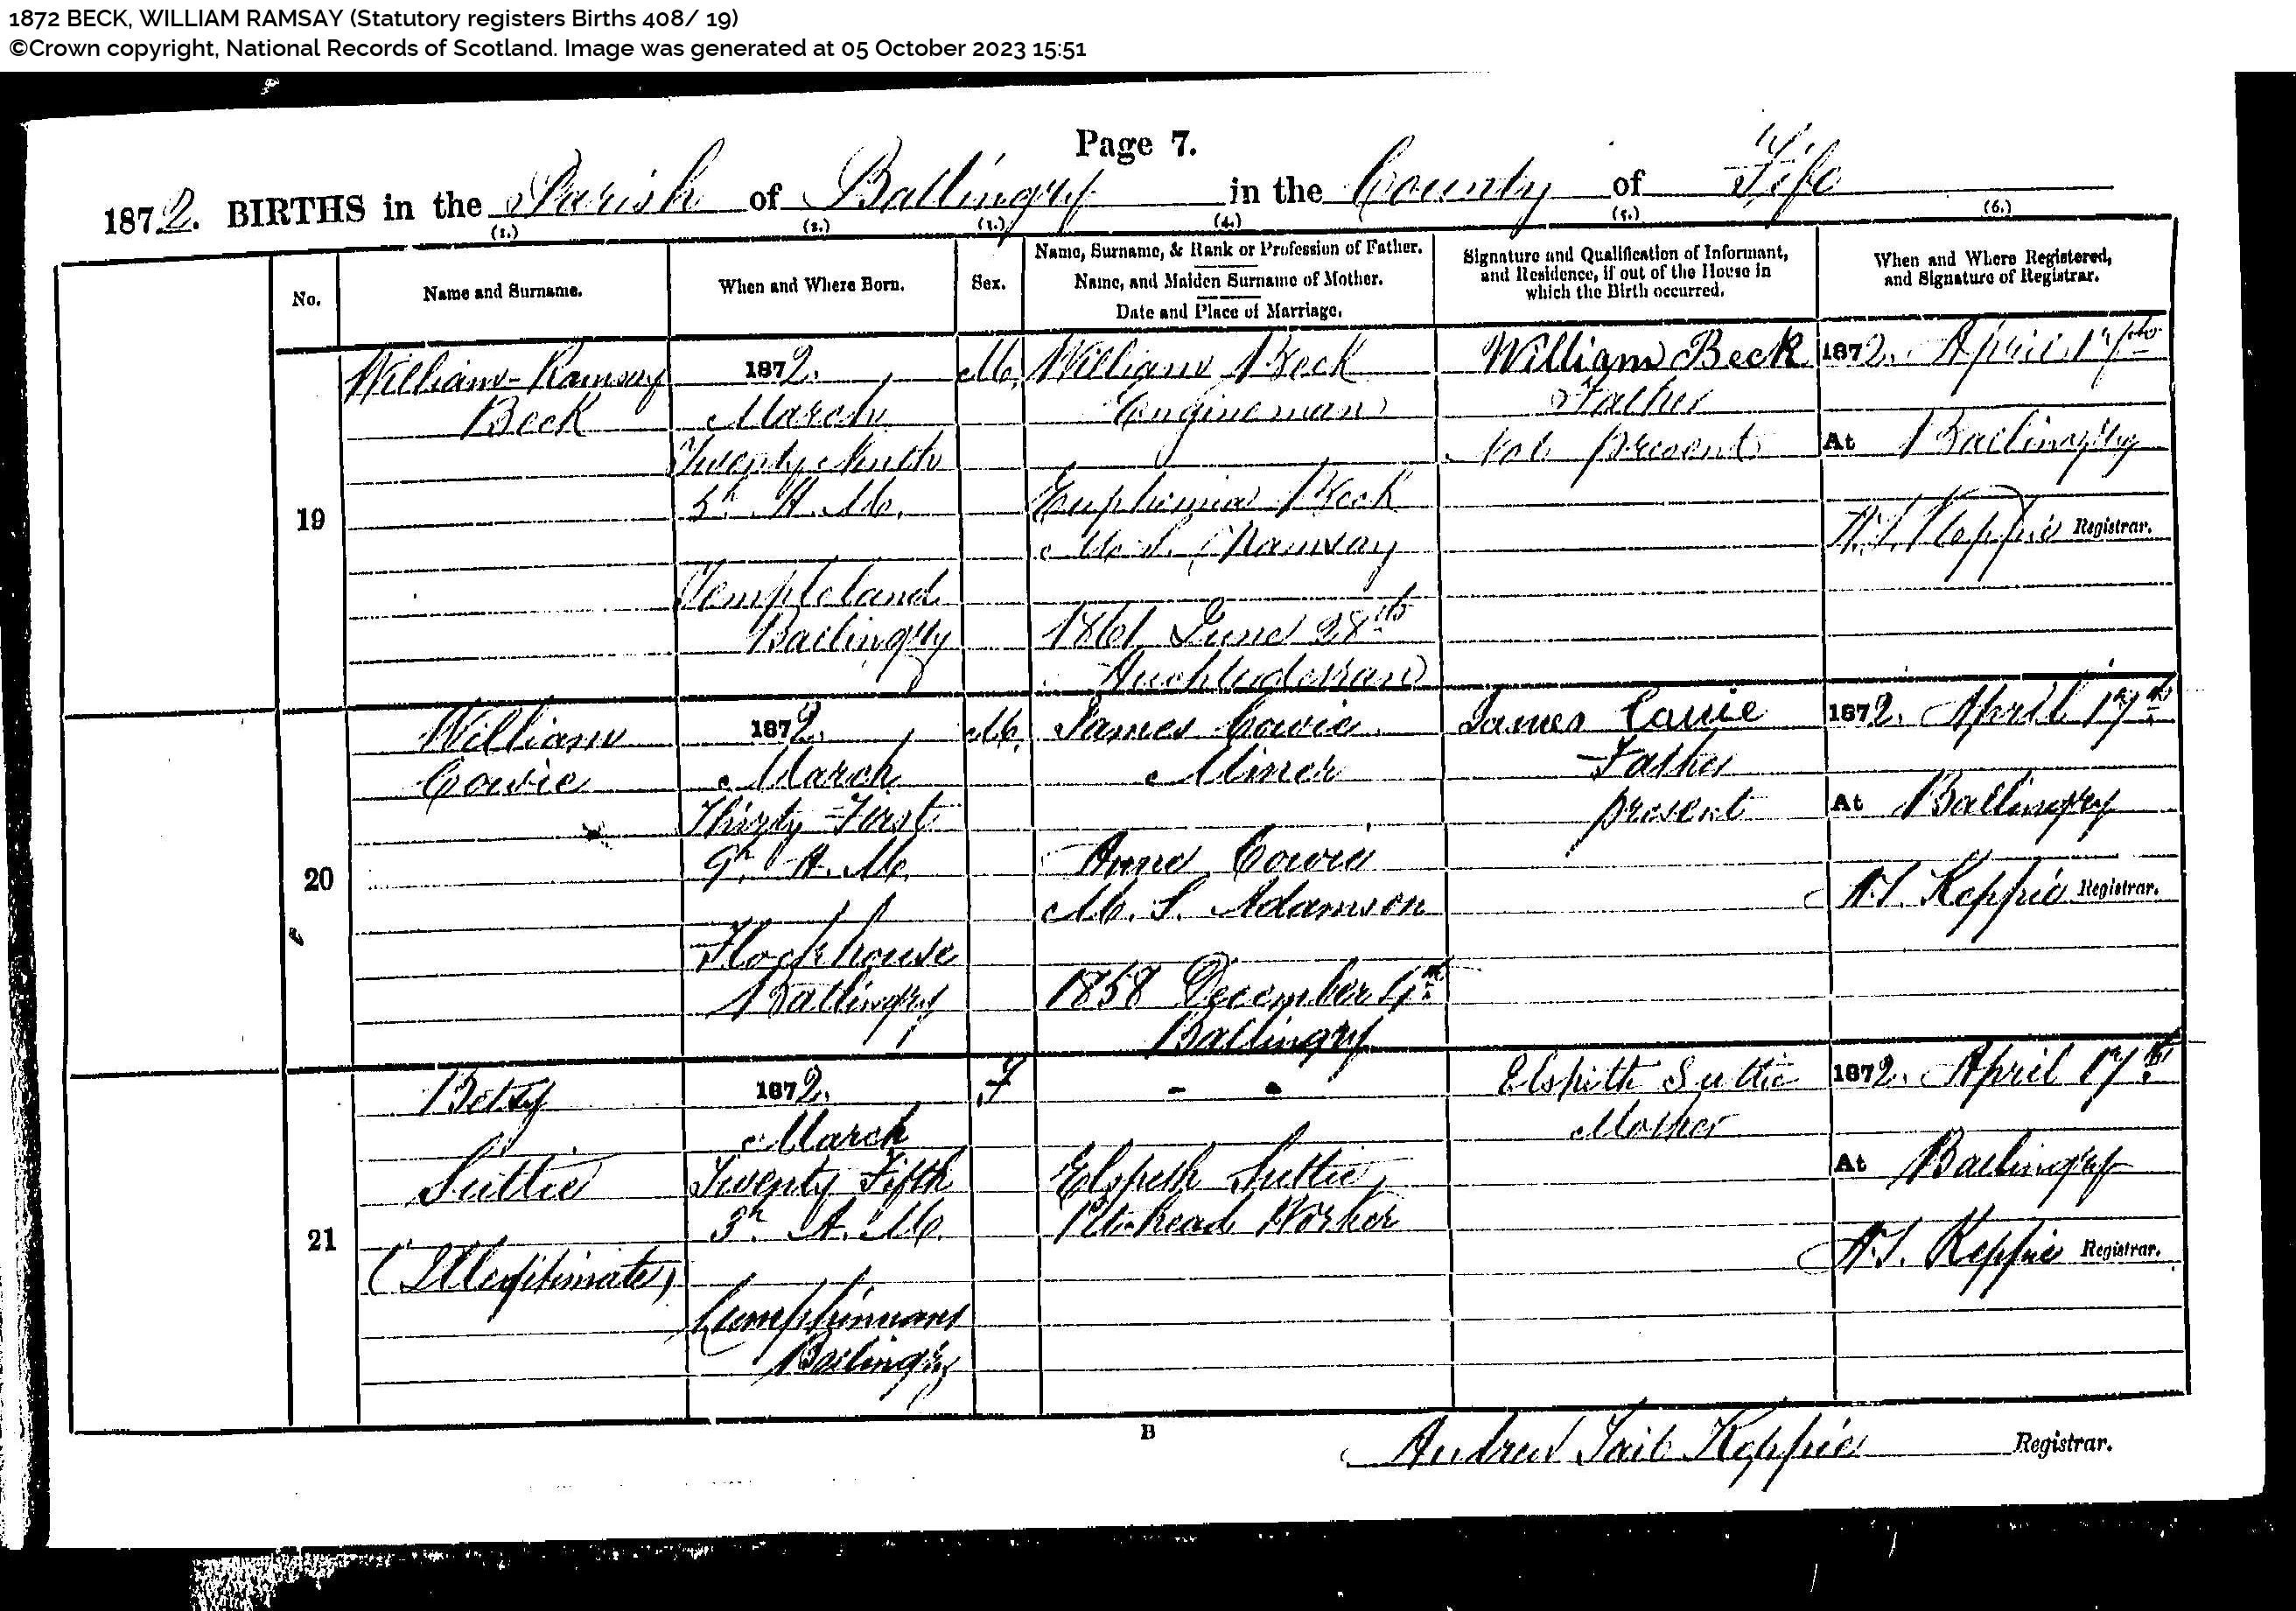 1872 BECK, WILLIAM RAMSAY (Statutory registers Births 408/ 19)
©Crown copyright, National Records of Scotland. Image was generated at 05 October 2023 15:51
Page 7.
1872. BIRTHS in the Parish of Ballingry in the County of Fife
(1.) (2.) (3.) (4.) (5.) (6.)
No.
Name and Surname.
When and Where Born.
Sex.
Name, Surname, & Rank or Profession of Father.
Name, and Maiden Surname of Mother.
Date and Place of Marriage.
Signature and Qualification of Informant,
and Residence, if out of the House in
which the Birth occurred.
When and Where Registered,
and Signature of Registrar.
19
William Ramsay
Beck
1872.
March
Twenty Ninth
5h. A. M.
Templeland
Ballingry
M.
William Beck
Engineman
Euphemia Beck
M. S. Ramsay
1861 June 28th
Auchterderran
William Beck
Father
Not present
1872. April 17th
At Ballingry
A. T. Keppie Registrar.
20
William
Cowie
1872.
March
Thirty-First
9h. A. M.
Flockhouse
Ballingry
M.
James Cowie
Miner
Anne Cowie
M. S. Adamson
1858 December 4th
Ballingry
James Cowie
Father
present
1872. April 17th
At Ballingry
A. T. Keppie Registrar.
21
Betsy
Suttie
(Illegitimate)
1872.
March
Twenty Fifth
3h. A. M.
Lumphinnans
Ballingry
F
- -
Elspeth Suttie
Pit-head Worker
Elspith Suttie
Mother
1872. April 17th
At Ballingry
A. T. Keppie Registrar.
B
Andrew Tait Keppie Registrar.